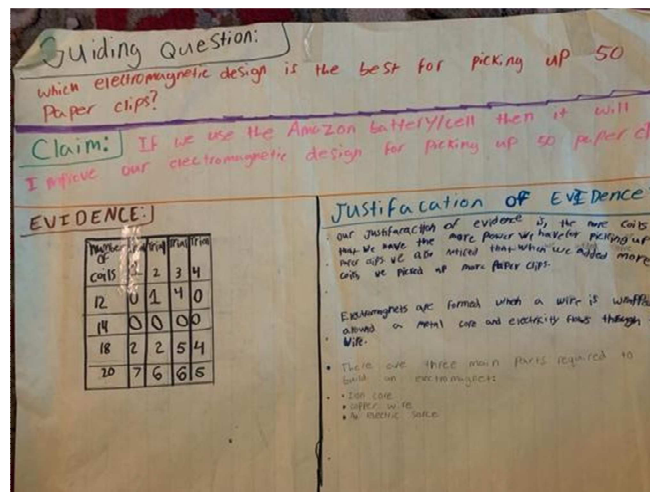 Guiding Question:
which electromagnetic design is the best for picking up 50
Paper clips?
Claim: If we use the Amazon battery/cell then it will
Improve our electromagnetic design for picking up 50 paper cl
EVIDENCE:
Number of coils Trial 1 Trial 2 Trial 3 Trial 4
12 0 1 4 0
14 0 0 0 0
18 2 2 5 4
20 7 6 6 5
Justifacation OF EVIDence
our justifaraction of evidence is, the more coils
that we have the more power we have for picking up
Paper clips we also noticed that when we added more
coils, we picked up more Paper clips.
Electromagnets are formed when a wire is wrapped
around a metal core and electricity flows through
Wire.
• There are three main parts required to
build an electromagnet:
• Iron core
• copper wire
• An electric